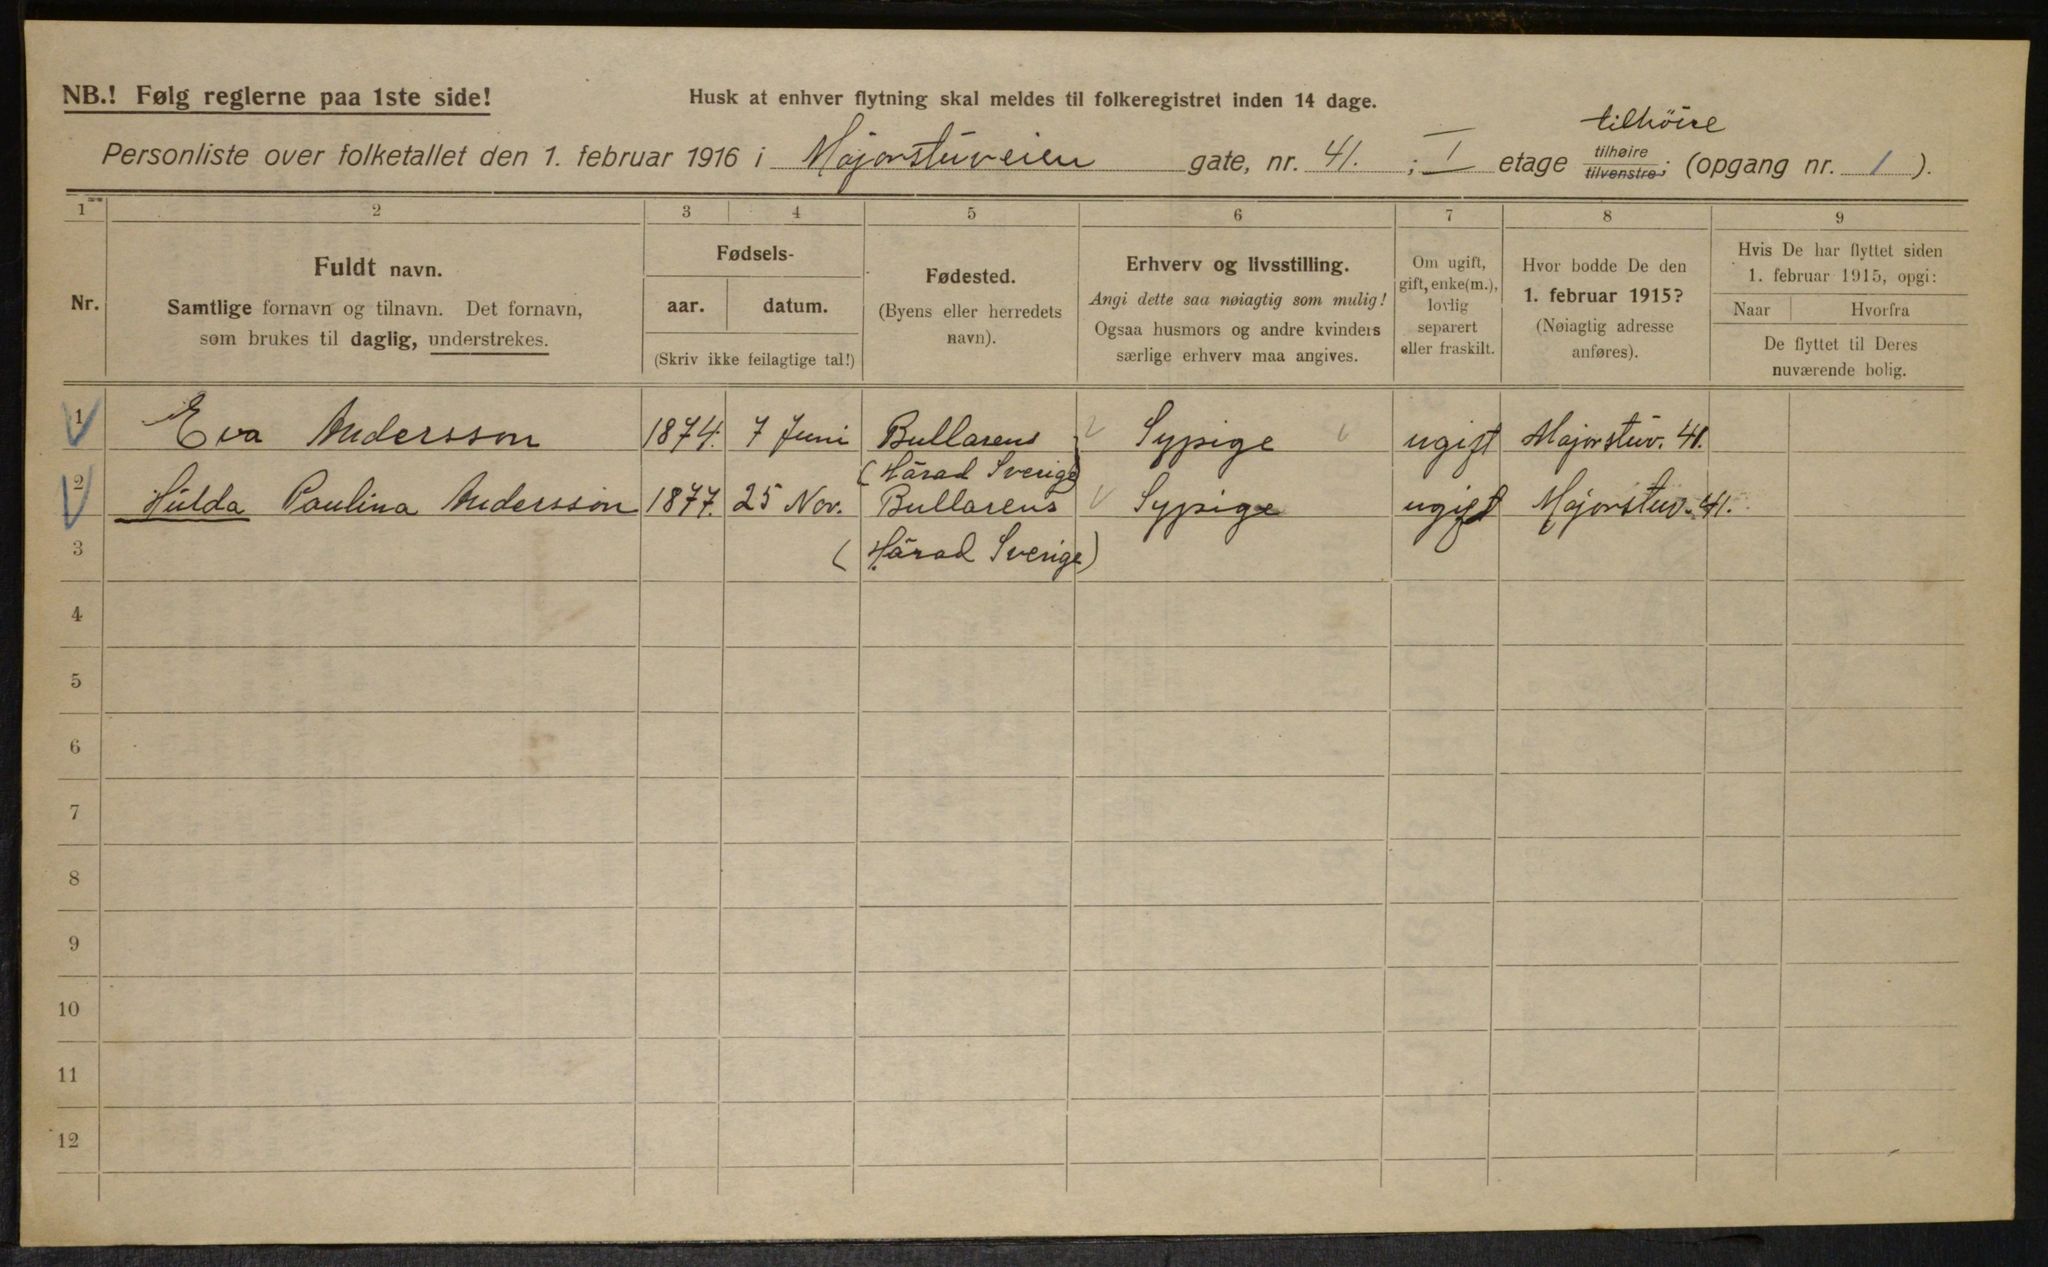 NB.! Følg reglerne paa 1ste side!
Husk at enhver flytning skal meldes til folkeregistret inden 14 dage.
tilhöire
Personliste over folketallet den 1. februar 1916 i Majorstuveien gate, nr. 41. ; I etage tilhøire tilvenstre; (opgang nr. 1 ).
1 2 3 4 5 6 7 8 9
Nr.
Fuldt navn.
Samtlige fornavn og tilnavn. Det fornavn,
som brukes til daglig, understrekes.
Fødsels-
aar. datum.
(Skriv ikke feilagtige tal!)
Fødested.
(Byens eller herredets
navn).
Erhverv og livsstilling.
Angi dette saa nøiagtig som mulig!
Ogsaa husmors og andre kvinders
særlige erhverv maa angives.
Om ugift,
gift, enke(m.),
lovlig
separert
eller fraskilt.
Hvor bodde De den
1. februar 1915?
(Nøiagtig adresse
anføres).
Hvis De har flyttet siden
1. februar 1915, opgi:
Naar Hvorfra
De flyttet til Deres
nuværende bolig.
1 Eva Andersson 1874. 7 Juni Bullarens Sypige ugift Majorstuv. 41.
(Härad Sverige)
2 Hulda Paulina Andersson 1877. 25 Nov. Bullarens Sypige ugift Majorstuv. 41.
3 (Härad Sverige)
4
5
6
7
8
9
10
11
12